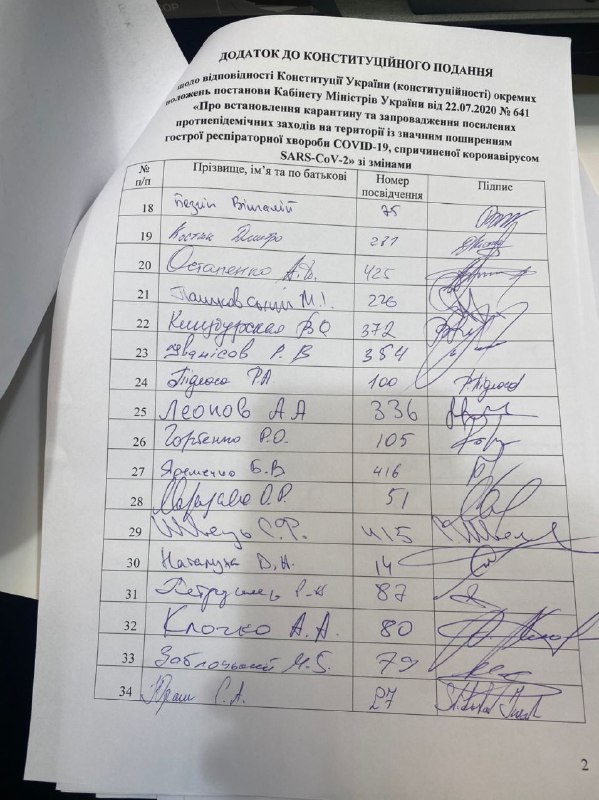 ДОДАТОК ДО КОНСТИТУЦІЙНОГО ПОДАННЯ
щодо відповідності Конституції України (конституційності) окремих
положень постанови Кабінету Міністрів України від 22.07.2020 № 641
«Про встановлення карантину та запровадження посилених
протиепідемічних заходів на території із значним поширенням
гострої респіраторної хвороби COVID-19, спричиненої коронавірусом
SARS-CoV-2» зі змінами
№ п/п Прізвище, ім’я та по батькові Номер посвідчення Підпис
18 Віталій 75
19 Костюк Дмитро 281
20 Остапенко А.Д. 425
21 Пашковський М.І. 226
22 372
23 Іванісов Р. В 354
24 Підласа Р.А 100 РПідласа
25 Леонов А А 336
26 Горбенко Р.О. 105
27 Яременко Б.В 416
28 О.Р. 51
29 Швець С.Ф. 415
30 Наталуха Д.А. 14
31 Петруняк 87
32 Клочко А.А. 80
33 Заблоцький М.Б. 79
34 Юраш С.А. 27
2